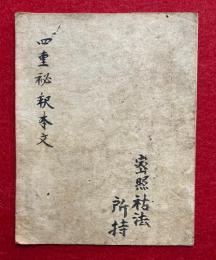 四重秘釈本文
密照祐法
所持